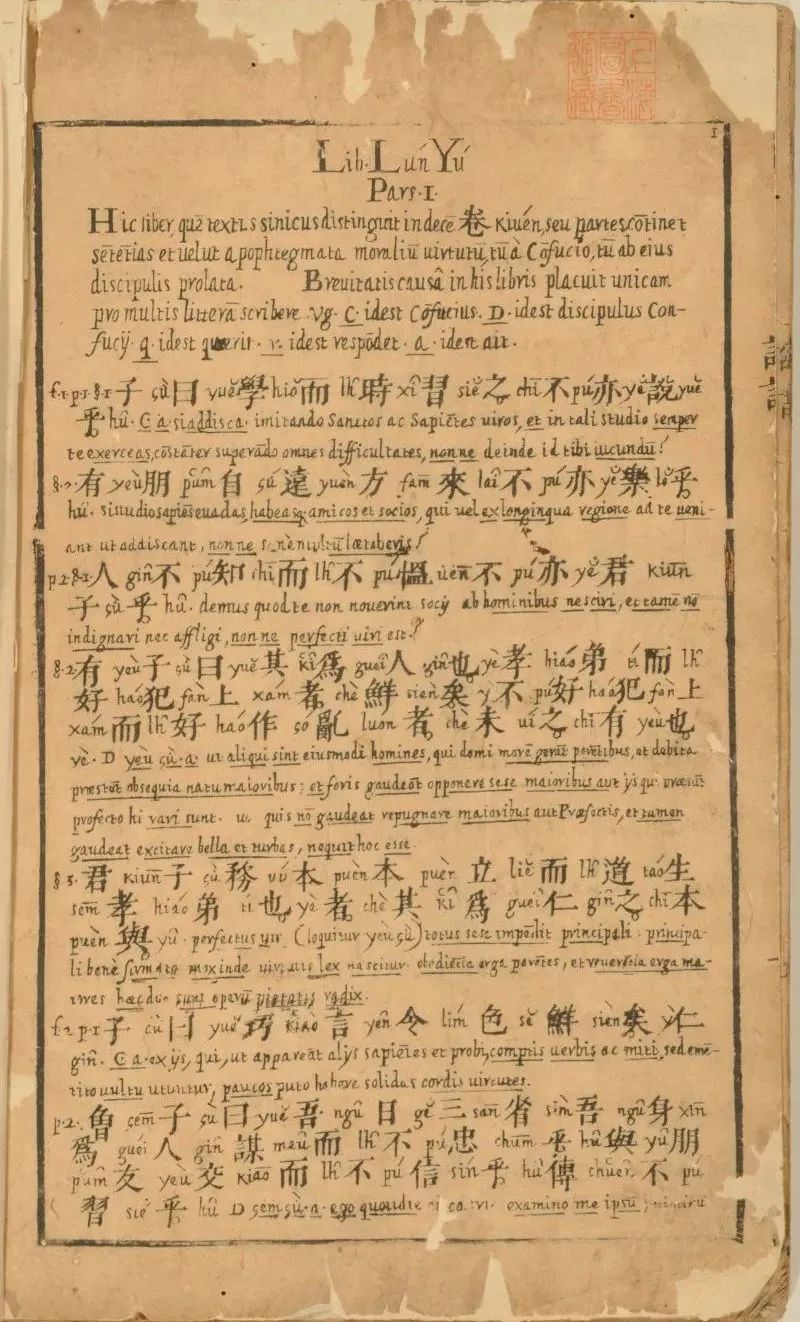 1
Lib. Lún Yú
Pars. I.
Hic liber quē textus sinicus distinguit in decē 卷 kiuén, seu partes, cōtinet
sētētias et velut apophtegmata moraliū uirtutū, tū à Cōfucio, tū ab eius
discipulis prolata. Breuitatis causâ in his libris placuit unicam
pro multis litterā scribere. Vg. C. idest Cōfucius. D. idest discipulus Con-
fucÿ. q. idest quærit. r. idest respōdet. a. idest ait.
f.1. p.1. §.1. 子 çù 曰 yuĕ 學 hiŏ 而 lh 時 xî 習 siĕ 之 chī 不 pú 亦 yĕ 說 yuĕ
乎 hû. C. a. si addisca. imitando Sanctos ac Sapiētes uiros, et in tali studio semper
te exerceas, cōstāter superādo omnes difficultates, nonne deinde id tibi iucundū?
§.2. 有 yeù 朋 pûm 自 çú 遠 yuèn 方 fam 來 laî 不 pú 亦 yĕ 樂 lŏ 乎
hû. si studio sapiēs euadas, habeasq. amicos et socios, qui uel ex longinqua regione ad te ueni-
ant ut addiscant, nonne lætaberis?
p.2. §.1. 人 gin 不 pú 知 chī 而 lh 不 pú 慍 uén 不 pú 亦 yĕ 君 kiūn
子 çù 乎 hû. demus quod te non nouerint socÿ ab hominibus nesciri, et tamē nō
indignari nec affligi, nonne perfecti uiri est?
§.2. 有 yeù 子 çù 曰 yuĕ 其 kî 爲 gueî 人 gin 也 yè 孝 hiáo 弟 tí 而 lh
好 haó 犯 fán 上 xám 者 chè 鮮 sièn 矣 y 不 pú 好 haó 犯 fán 上
xám 而 lh 好 haó 作 ço 亂 luon 者 chè 未 uí 之 chī 有 yeù 也
yè. D yeù çù. a. ut aliqui sint eiusmodi homines, qui domi morē gerāt parētibus, et debita
præstēt obsequia natu maioribus; et foris gaudeāt opponere sese maioribus aut ÿs qui præsūt
profecto hi rari sunt. quis nō gaudeat repugnare maioribus aut Præfectis, et tamen
gaudeat excitare bella et turbas, nequit hoc esse.
§.3. 君 kiūn 子 çù 務 vú 本 puèn 本 puèn 立 liĕ 而 lh 道 táo 生
sem 孝 hiáo 弟 tí 也 yè 者 chè 其 kî 爲 gueî 仁 gin 之 chī 本
puèn 與 yû. perfectus uir (loquitur yeù çù) totus sese impēdit principali. principa-
li benè firmato mox inde uirtutis lex nascitur. obediētia erga parētes, et reuerētia erga ma-
iores hæc duo sunt operū pietatis radix.
f.2. p.1. 子 çù 曰 yuĕ 巧 kiào 言 yên 令 lím 色 sĕ 鮮 sièn 矣 y 仁
gin. C. a. ex ÿs, qui, ut appareāt alÿs sapiētes et probi, comptis uerbis ac miti, sed emē-
tito uultu utuntur, paucos puto habere solidas cordis uirtutes.
p.2. 曾 çem 子 çù 曰 yuĕ 吾 ngû 日 gĕ 三 san 省 sìm 吾 ngû 身 xin
爲 guéi 人 gin 謀 meû 而 lh 不 pú 忠 chum 乎 hû 與 yù 朋
pûm 友 yeù 交 kiāo 而 lh 不 pú 信 sín 乎 hû 傳 chuên 不 pú
習 siĕ 乎 hû D çem çù. a. ego quotidie examino me ipsū